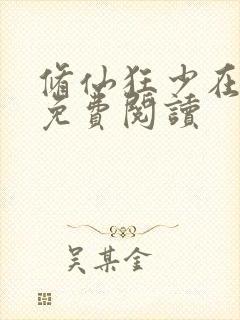 脩仙狂少在
免費閱讀
吴某金